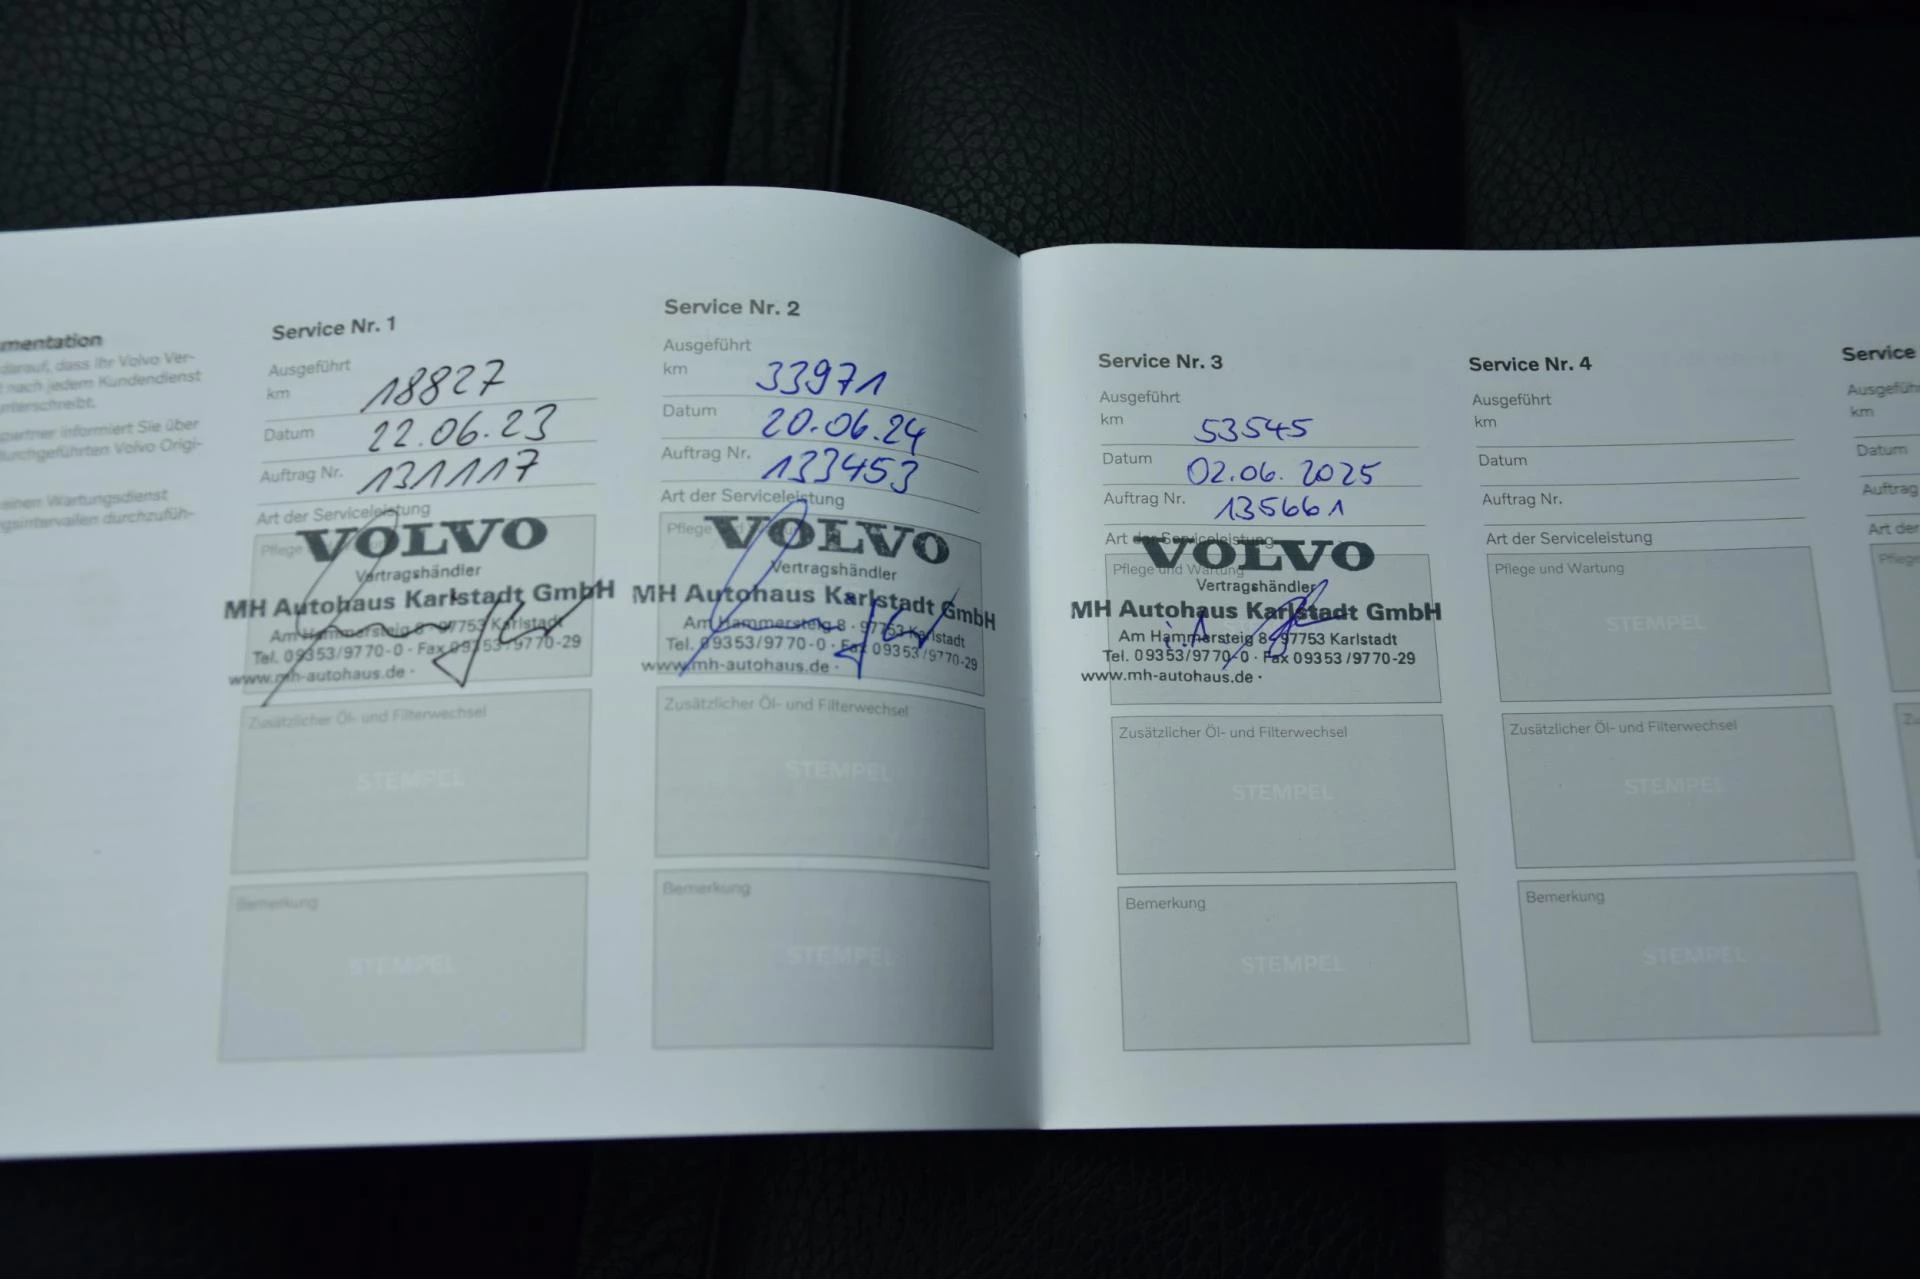 mentation
darauf, dass Ihr Volvo Ver-
nach jedem Kundendienst
unterschreibt.
partner informiert Sie über
durchgeführten Volvo Origi-
einen Wartungsdienst
Service Nr. 1
Ausgeführt
km 18827
Datum 22.06.23
Auftrag Nr. 131117
Art der Serviceleistung
Pflege
VOLVO
Vertragshändler
MH Autohaus Karlstadt GmbH
Am Hammersteig 8 · 97753 Karlstadt
Tel. 09353/9770-0 · Fax 09353/9770-29
www.mh-autohaus.de ·
Zusätzlicher Öl- und Filterwechsel
STEMPEL
Bemerkung
STEMPEL
Service Nr. 2
Ausgeführt
km 33971
Datum 20.06.24
Auftrag Nr. 133453
Art der Serviceleistung
Pflege
VOLVO
Vertragshändler
MH Autohaus Karlstadt GmbH
Am Hammersteig 8 · 97753 Karlstadt
Tel. 09353/9770-0 · Fax 09353/9770-29
www.mh-autohaus.de ·
Zusätzlicher Öl- und Filterwechsel
STEMPEL
Bemerkung
STEMPEL
Service Nr. 3
Ausgeführt
km 53545
Datum 02.06.2025
Auftrag Nr. 135661
Art der Serviceleistung
Pflege und Wartung
VOLVO
Vertragshändler
MH Autohaus Karlstadt GmbH
Am Hammersteig 8 · 97753 Karlstadt
i.A
Tel. 09353/9770-0 · Fax 09353/9770-29
www.mh-autohaus.de ·
Zusätzlicher Öl- und Filterwechsel
STEMPEL
Bemerkung
STEMPEL
Service Nr. 4
Ausgeführt
km
Datum
Auftrag Nr.
Art der Serviceleistung
Pflege und Wartung
STEMPEL
Zusätzlicher Öl- und Filterwechsel
STEMPEL
Bemerkung
STEMPEL
Service
Ausgeführ
km
Datum
Auftrag
Art der
Pflege
Zu